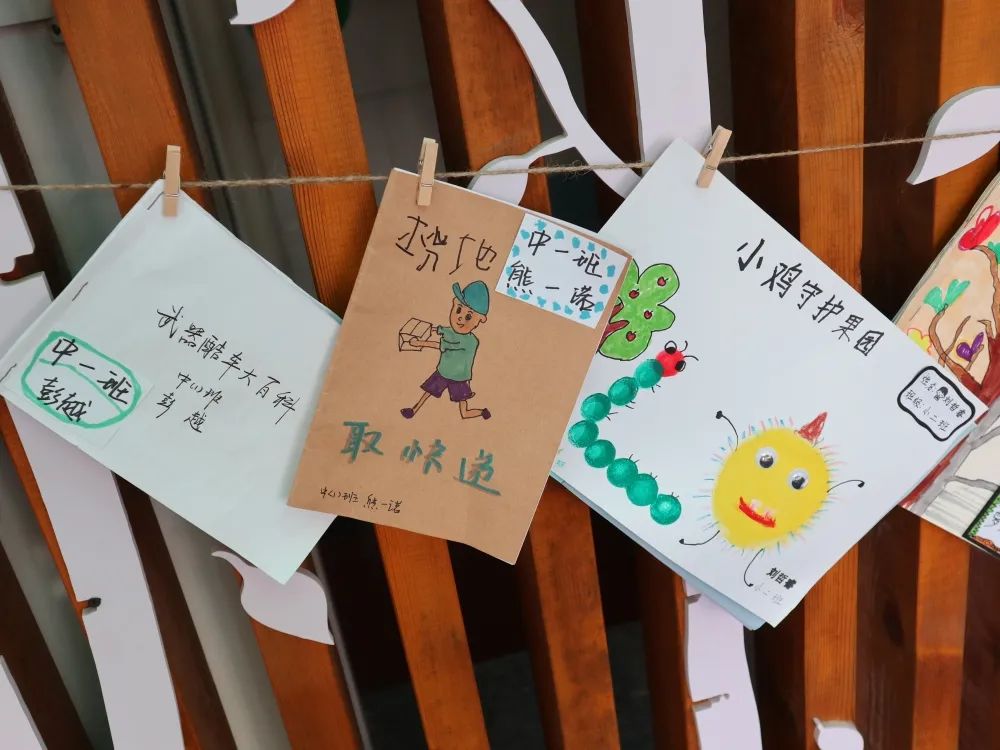 武器酷车大百科
中(一)班
彭越
中一班
彭越
挠地
中一班
熊一诺
取快递
中(一)班 熊一诺
小鸡守护果园
姓名:刘哲睿
班级:小二班
刘哲睿
小二班